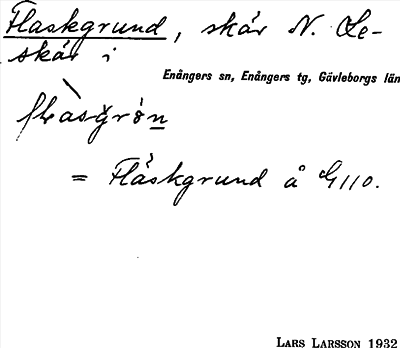 Flaskgrund, skär N. Le-
skär i
Enångers sn, Enångers tg, Gävleborgs län
= Fläskgrund å G110.
LARS LARSSON 1932